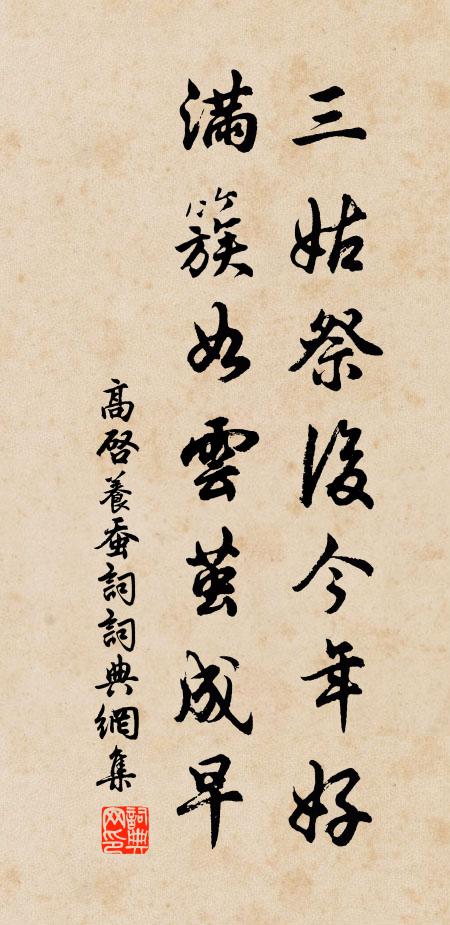 三姑祭後今年好
滿簇如雲茧成早
高啓養蚕詞詞典網集
詞典网印